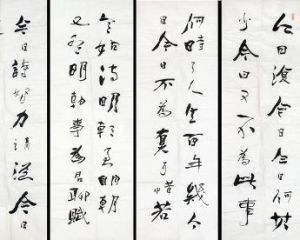 今日復今日今日何其
少今日又不為此事
何時了人生百年幾今
日今日不為真可惜若
言姑待明朝至明朝
又有明朝事為君聊賦
今日詩努力請從今日